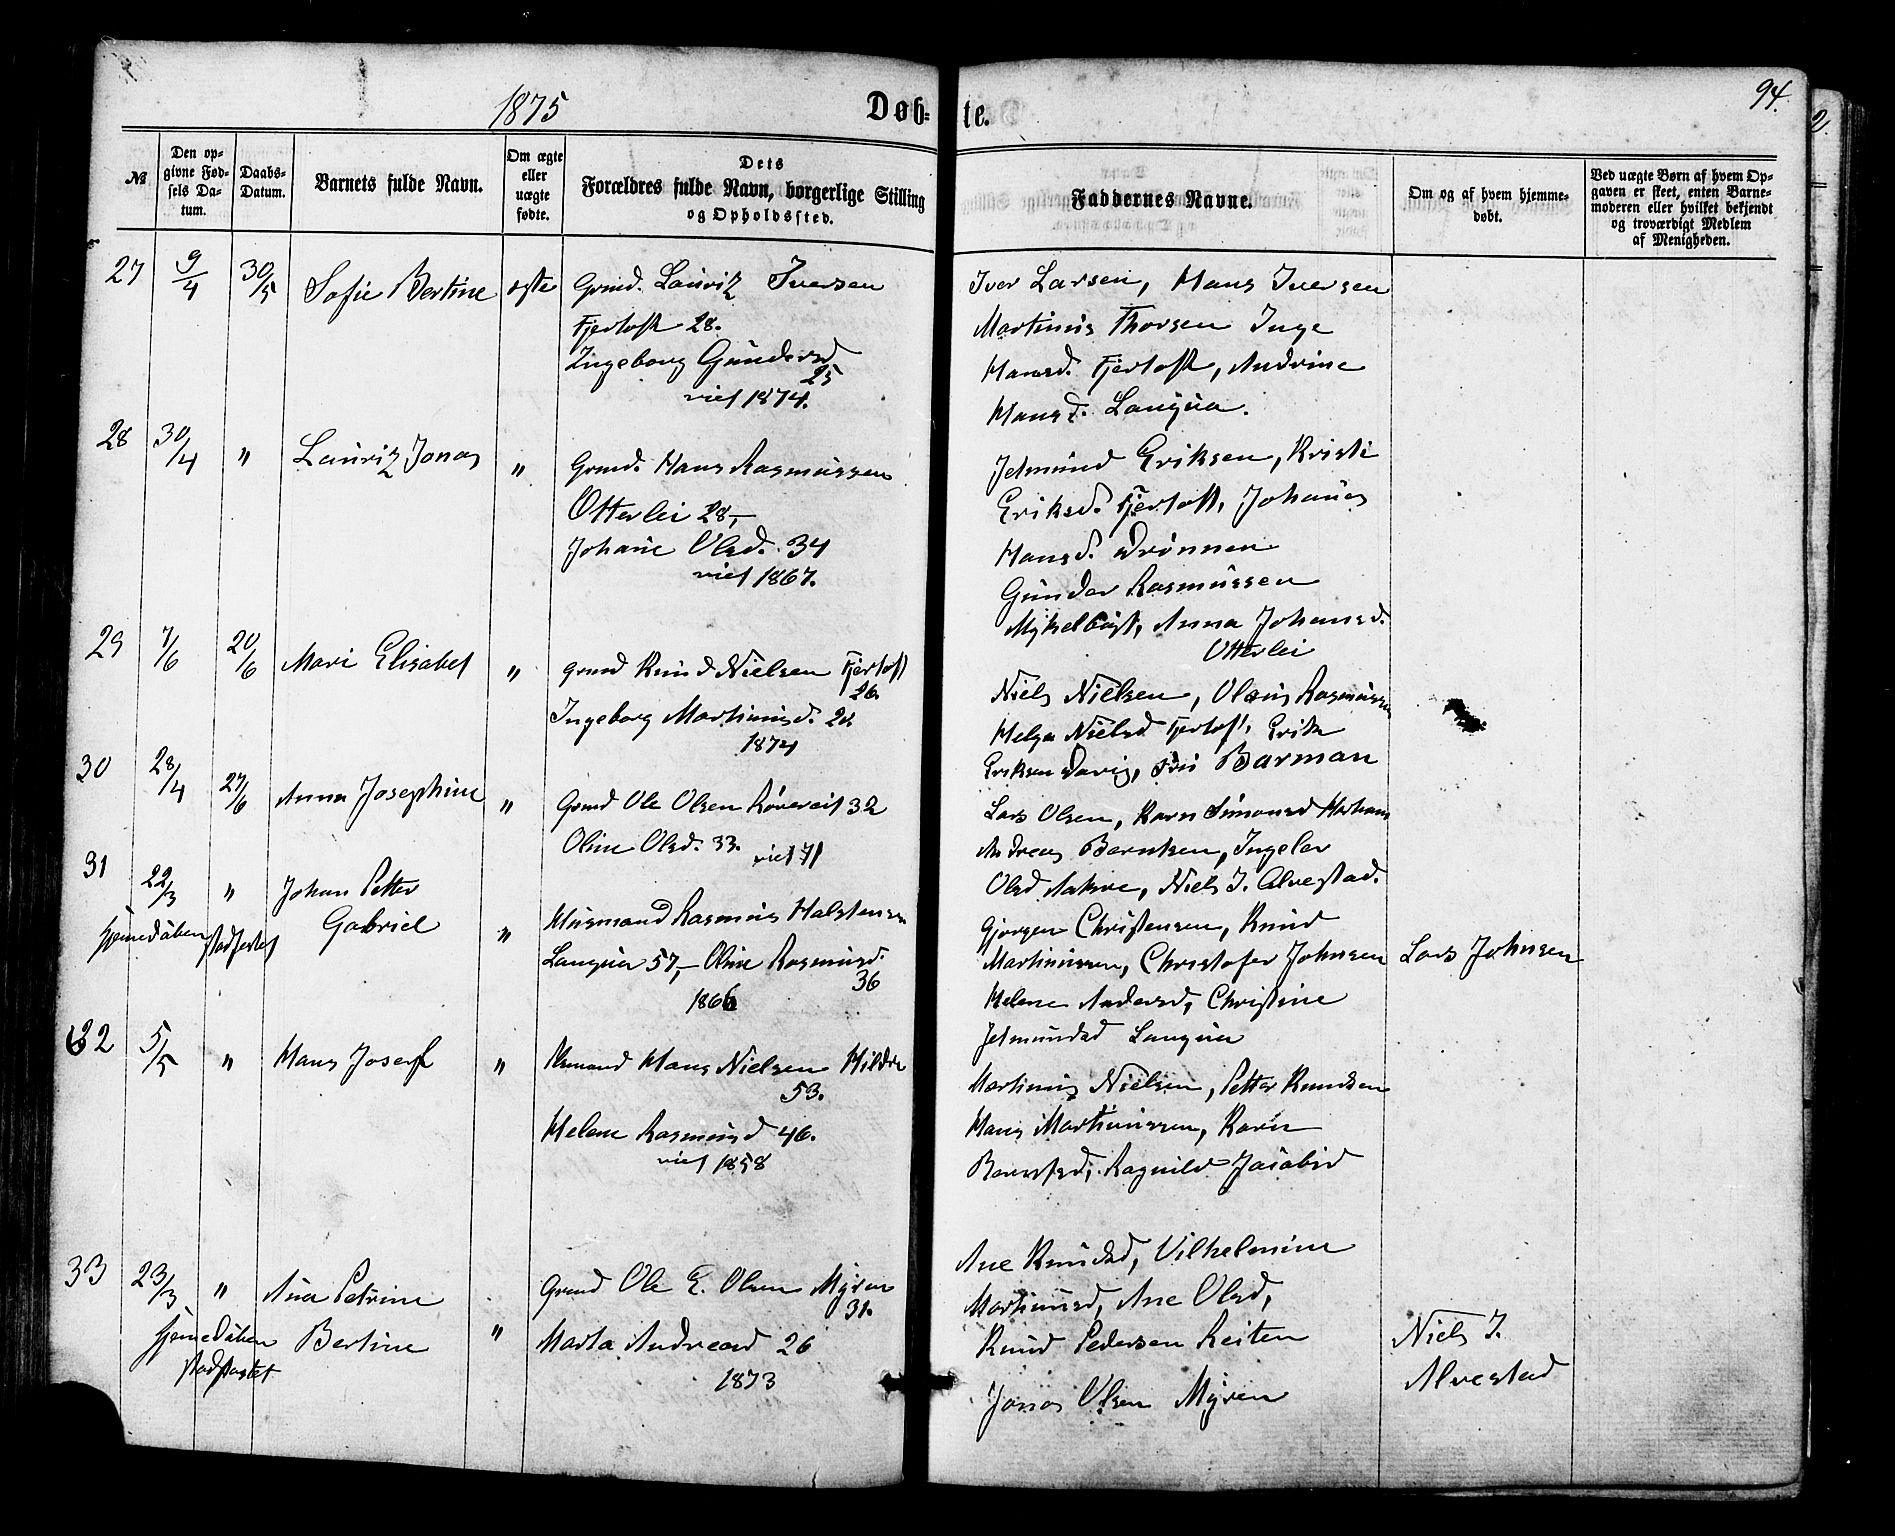 1875
Døb-
te.
94.
2.
№
Den op-
givne Fød-
sels Da-
tum.
Daabs-
Datum.
Barnets fulde Navn.
Om ægte
eller
uægte
fødte.
Dets
Forældres fulde Navn, borgerlige Stilling
og Opholdssted.
Faddernes Navne.
Om og af hvem hjemme-
døbt.
Ved uægte Børn af hvem Op-
gaven er skeet, enten Barne-
moderen eller hvilket bekjendt
og troværdigt Medlem
af Menigheden.
27 9/4 30/5 Sofie Bertine ægte Grmd. Lauritz Iversen
Fjertoft 28.
Ingeborg Gundersd
25
viet 1874.
Iver Larsen, Hans Iversen
Martinus Thorsen Inge
Hansd. Fjertoft, Andrine
Hansd. Langva.
28 30/4 " Lauritz Jonas " Grmd. Hans Rasmussen
Otterlei 28,-
Johane Olsd. 34
viet 1867.
Jetmund Eriksen, Kristi
Eriksd. Fjertoft, Johanes
Hansd. Drønnen
Gunder Rasmussen
Myklebust, Anna Johansd.
Otterlei
29 7/6 20/6 Mari Elisabet " Grmd Knud Nielsen Fjertoft
26
Ingeborg Martinusd. 24
1874
Niels Nielsen, Olaus Rasmussen
Helga Nielsd Fjertoft, Erik
Eriksen Davig, Barman
30 28/4 27/6 Anna Josephine " Grmd Ole Olsen Røvereit 32
Oline Olsd. 33. viet 71
Lars Olsen, Karn Simonsd
Andreas Berntsen, Ingeler
Olsd Aakre, Niels J. Alvestad.
31 22/3 " Johan Petter
Gabriel
hjemedøben stadfestet
" Husmand Rasmus Halstensen
Langva 57,- Oline Rasmusd.
36
1866
Gjørgen Christensen, Knud
Martinussen, Christofer Johnsen
Helene Andersd, Christine
Jetmundsd Langva
Lars Johnsen
32 5/5 " Hans Josef " Hans Nielsen Hildre
53.
Helene Rasmusd 46.
viet 1858
Martinus Nielsen, Petter Knudsen
Hans Martinussen, Karn
Ragnild Jacobsd
33 23/3 " Ana Petrine
Bertine
hjemedøben
stadfæstet
" Grmd Ole E. Olsen Myren
31.
Marta Andreasd 26
1873
Ane Knudsd, Vilhelmine
Martinusd, Ane Olsd,
Knud Pedersen Reiten
Jonas Olsen Myren
Niels J.
Alvestad